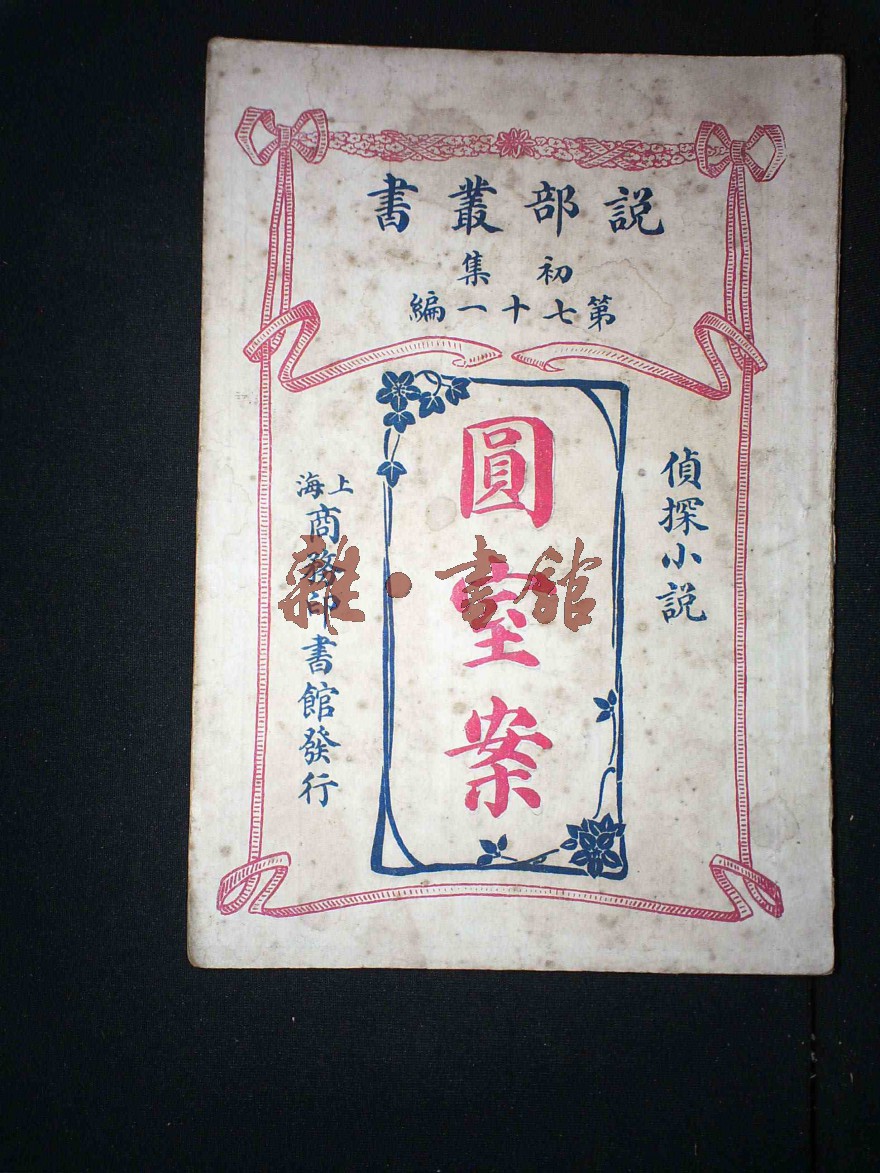 説部叢書
初集
第七十一編
偵探小説
圓室案
上海
商務印書館發行
雜·書館